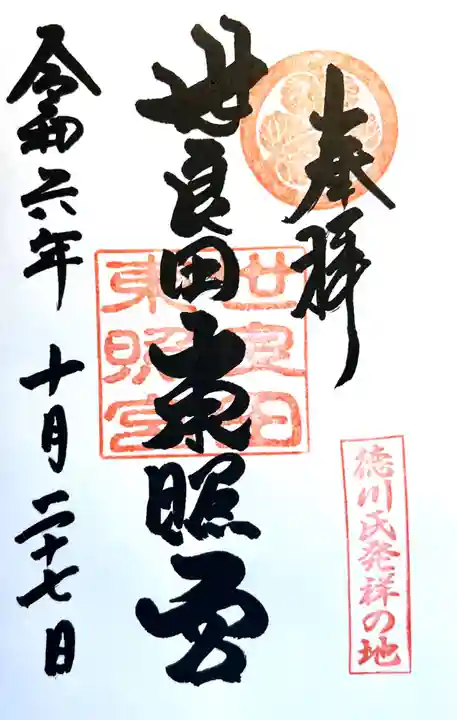 奉拝
徳川氏発祥の地
世良田東照宮
世良田
東照宮
令和六年 十月二十七日